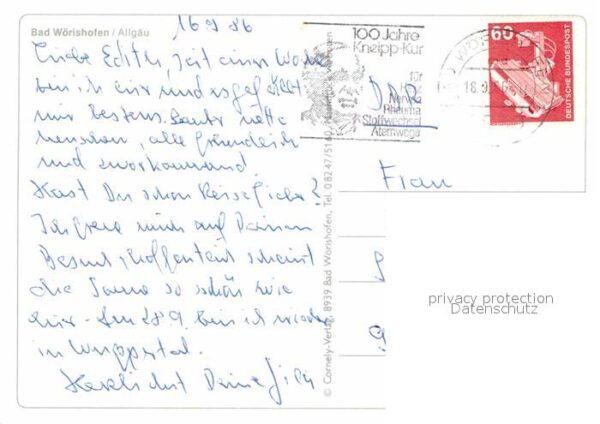 Bad Wörishofen / Allgäu
16 9 86
Liebe Edith, seit einer Woche
bin ich hier und es gefällt
mir bestens. Lauter nette
Menschen, alle freundlich
und zuvorkommend.
Hast Du schon Reisefieber?
Ich freue mich auf Deinen
Besuch, hoffentlich scheint
die Sonne so schön wie
hier. Am 28 9. bin ich wieder
in Wuppertal.
Herzlichst Deine
100 Jahre
Kneipp-Kur
für
Herz
Nerven
Rheuma
Stoffwechsel
Atemwege
DDR
18.9.
60
DEUTSCHE BUNDESPOST
Frau
© Cornely-Verlag, 8939 Bad Wörishofen, Tel. 0 82 47/51 60
privacy protection
Datenschutz